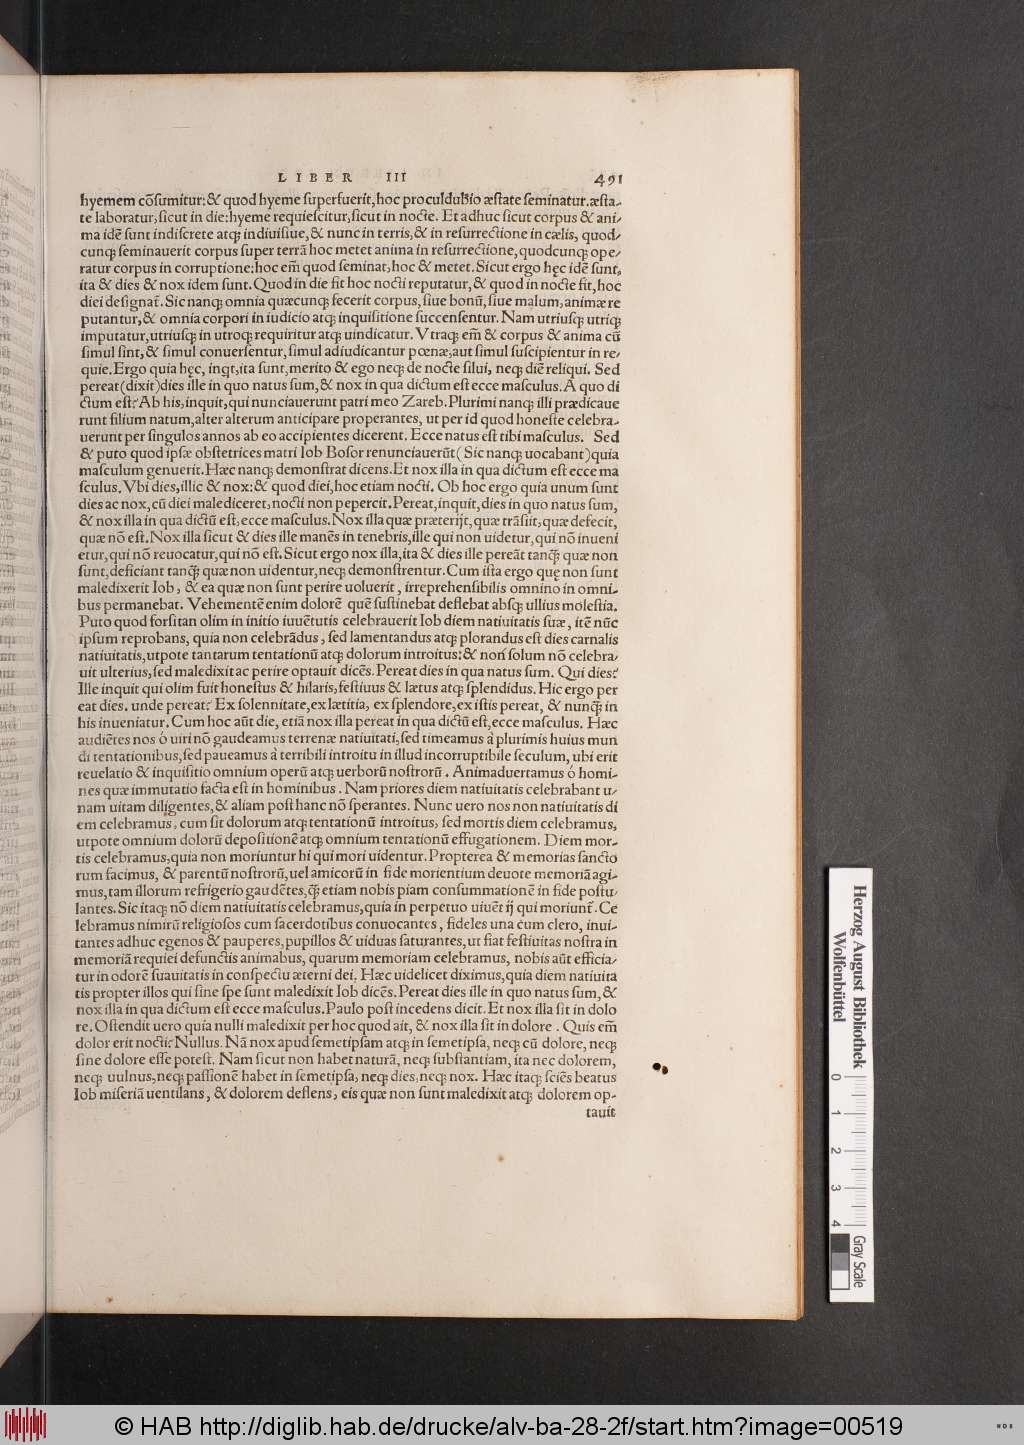 LIBER III 491
hyemem cōſumitur: & quod hyeme ſuperfuerit, hoc proculdubio æſtate ſeminatur. æſta-
te laboratur, ſicut in die: hyeme requieſcitur, ſicut in nocte. Et adhuc ſicut corpus & ani-
ma idē ſunt indiſcrete atq; indiuiſiue, & nunc in terris, & in reſurrectione in cælis, quod-
cunq; ſeminauerit corpus ſuper terrā hoc metet anima in reſurrectione, quodcunq; ope-
ratur corpus in corruptione: hoc em̄ quod ſeminat, hoc & metet. Sicut ergo hęc idē ſunt,
ita & dies & nox idem ſunt. Quod in die fit hoc nocti reputatur, & quod in nocte fit, hoc
diei deſignat̄. Sic nanq; omnia quæcunq; fecerit corpus, ſiue bonū, ſiue malum, animæ re
putantur, & omnia corpori in iudicio atq; inquiſitione ſuccenſentur. Nam utriuſq; utriq;
imputatur, utriuſq; in utroq; requiritur atq; uindicatur. Vtraq; em̄ & corpus & anima cū
ſimul ſint, & ſimul conuerſentur, ſimul adiudicantur pœnæ, aut ſimul ſuſcipientur in re-
quie. Ergo quia hęc, inqt, ita ſunt, merito & ego neq; de nocte ſilui, neq; diē reliqui. Sed
pereat (dixit) dies ille in quo natus ſum, & nox in qua dictum eſt ecce maſculus. A quo di
ctum eſt? Ab his, inquit, qui nunciauerunt patri meo Zareb. Plurimi nanq; illi prædicaue
runt filium natum, alter alterum anticipare properantes, ut per id quod honeſte celebra-
uerunt per ſingulos annos ab eo accipientes dicerent. Ecce natus eſt tibi maſculus. Sed
& puto quod ipſæ obſtetrices matri Iob Boſor renunciauerūt (Sic nanq; uocabant) quia
maſculum genuerit. Hæc nanq; demonſtrat dicens. Et nox illa in qua dictum eſt ecce ma
ſculus. Vbi dies, illic & nox: & quod diei, hoc etiam nocti. Ob hoc ergo quia unum ſunt
dies ac nox, cū diei malediceret, nocti non pepercit. Pereat, inquit, dies in quo natus ſum,
& nox illa in qua dictū eſt, ecce maſculus. Nox illa quæ præterijt, quæ trāſijt, quæ defecit,
quæ nō eſt. Nox illa ſicut & dies ille manēs in tenebris, ille qui non uidetur, qui nō inueni
etur, qui nō reuocatur, qui nō eſt. Sicut ergo nox illa, ita & dies ille pereāt tanq̄; quæ non
ſunt, deficiant tanq̄; quæ non uidentur, neq; demonſtrentur. Cum iſta ergo quę non ſunt
maledixerit Iob, & ea quæ non ſunt perire uoluerit, irreprehenſibilis omnino in omni-
bus permanebat. Vehementē enim dolorē quē ſuſtinebat deflebat abſq; ullius moleſtia.
Puto quod forſitan olim in initio iuuētutis celebrauerit Iob diem natiuitatis ſuæ, itē nūc
ipſum reprobans, quia non celebrādus, ſed lamentandus atq; plorandus eſt dies carnalis
natiuitatis, utpote tantarum tentationū atq; dolorum introitus: & non ſolum nō celebra-
uit ulterius, ſed maledixit ac perire optauit dicēs. Pereat dies in qua natus ſum. Qui dies?
Ille inquit qui olim fuit honeſtus & hilaris, feſtiuus & lætus atq; ſplendidus. Hic ergo per
eat dies. unde pereat? Ex ſolennitate, ex lætitia, ex ſplendore, ex iſtis pereat, & nunq̄; in
his inueniatur. Cum hoc aūt die, etiā nox illa pereat in qua dictū eſt, ecce maſculus. Hæc
audiētes nos ó uiri nō gaudeamus terrenæ natiuitati, ſed timeamus à plurimis huius mun
di tentationibus, ſed paueamus à terribili introitu in illud incorruptibile ſeculum, ubi erit
reuelatio & inquiſitio omnium operū atq; uerborū noſtrorū. Animaduertamus ó homi-
nes quæ immutatio facta eſt in hominibus. Nam priores diem natiuitatis celebrabant u-
nam uitam diligentes, & aliam poſt hanc nō ſperantes. Nunc uero nos non natiuitatis di
em celebramus, cum ſit dolorum atq; tentationū introitus, ſed mortis diem celebramus,
utpote omnium dolorū depoſitionē atq; omnium tentationū effugationem. Diem mor-
tis celebramus, quia non moriuntur hi qui mori uidentur. Propterea & memorias ſancto
rum facimus, & parentū noſtrorū, uel amicorū in fide morientium deuote memoriā agi-
mus, tam illorum refrigerio gaudētes, q̄; etiam nobis piam conſummationē in fide poſtu-
lantes. Sic itaq; nō diem natiuitatis celebramus, quia in perpetuo uiuēt ij qui moriunt̄. Ce
lebramus nimirū religioſos cum ſacerdotibus conuocantes, fideles una cum clero, inui-
tantes adhuc egenos & pauperes, pupillos & uiduas ſaturantes, ut fiat feſtiuitas noſtra in
memoriā requiei defunctis animabus, quarum memoriam celebramus, nobis aūt efficia-
tur in odorē ſuauitatis in conſpectu æterni dei. Hæc uidelicet diximus, quia diem natiuita
tis propter illos qui ſine ſpe ſunt maledixit Iob dicēs. Pereat dies ille in quo natus ſum, &
nox illa in qua dictum eſt ecce maſculus. Paulo poſt incedens dicit. Et nox illa ſit in dolo
re. Oſtendit uero quia nulli maledixit per hoc quod ait, & nox illa ſit in dolore. Quis em̄
dolor erit nocti? Nullus. Nā nox apud ſemetipſam atq; in ſemetipſa, neq; cū dolore, neq;
ſine dolore eſſe poteſt. Nam ſicut non habet naturā, neq; ſubſtantiam, ita nec dolorem,
neq; uulnus, neq; paſſionē habet in ſemetipſa, neq; dies, neq; nox. Hæc itaq; ſciēs beatus
Iob miſeriā uentilans, & dolorem deflens, eis quæ non ſunt maledixit atq; dolorem op-
tauit
Herzog August Bibliothek
Wolfenbüttel
0 1 2 3 4
Gray Scale
© HAB http://diglib.hab.de/drucke/alv-ba-28-2f/start.htm?image=00519